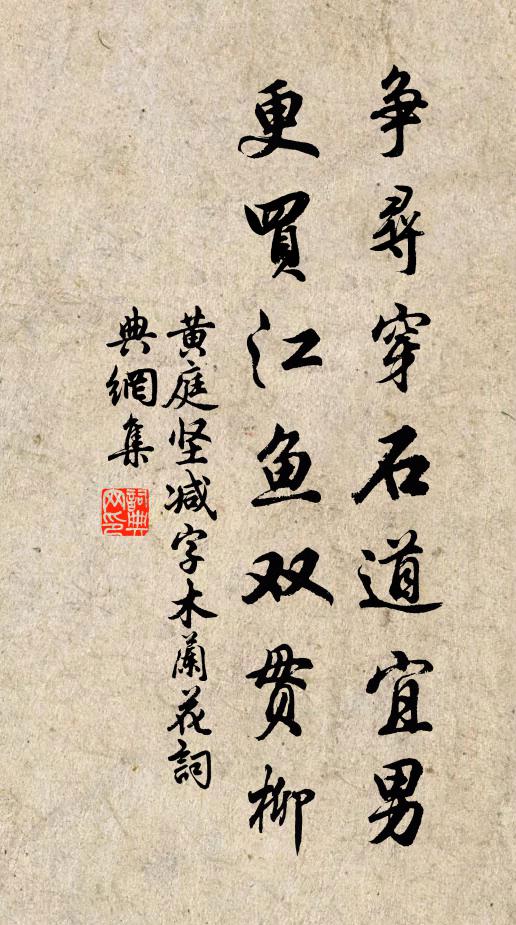 争尋穿石道宜男
更買江鱼双贯柳
黄庭坚减字木蘭花詞
典網集
詞典网印